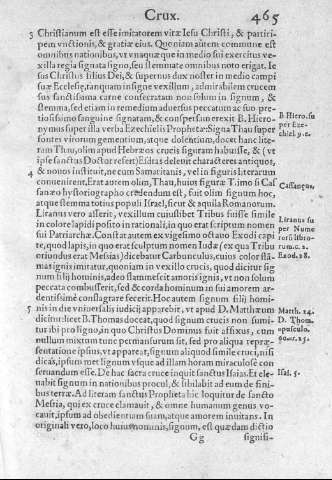 Crux. 465
3 Christianum est esse imitatorem vitæ Iesu Christi, & partici-
pem vnctionis, & gratiæ eius. Quoniam autem commune est
omnibus nationibus, vt vnaquæque in medio sui exercitus ve-
xilla regia signata signo, seu stemmate omnibus noto erigat. Ie
sus Christus filius Dei, & supernus dux noster in medio campi
suæ Ecclesiæ, tanquam insigne vexillum, admirabilem crucem
sus sanctissima carne consecratam non solum in signum, &
stemma, sed etiam in remedium aduersus peccatum ac suo pre-
tiosissimo sanguine signatam, & conspersam erexit B. Hiero-
nymus super illa verba Ezechielis Prophetæ: Signa Thau super
fontes virorum gementium, atque dolentium, docet hanc lite-
ram Thau, olim apud Hebræos crucis figuram habuisse, & (vt
ipse sanctus Doctor refert) Esdras deleuit characteres antiquos,
4 & nouos instituit, ne cum Samaritanis, vel in figuris literarum
conuenirent. Erat autem olim, Thau, huius figuræ T. imo si Cas
sanæo hystoriographo credendum est, fuit olim signum hoc,
atque stemma totius populi Israel, sicut & aquila Romanorum.
Liranus vero asserit, vexillum cuiuslibet Tribus fuisse simile
in colore lapidi posito in rationali, in quo erat scriptum nomen
sui Patriarchæ. Constat autem ex vigesimo octauo Exodi capi
te, quod lapis, in quo erat sculptum nomen Iudæ (ex qua Tribu
oriundus erat Messias) dicebatur Carbunculus, cuius color flã-
mas ignis imitatur, quoniam in vexillo crucis, quod dicitur sig
num filij hominis, adeo flammescit amoris ignis, vt non solum
peccata combusserit, sed & corda hominum in sui amorem ar-
dentissimè conflagrare fecerit. Hoc autem signum filij homi-
5 nis in die vniuersalis iudicij apparebit, vt apud D. Matthæum
dicitur: licet B. Thomas doceat, quod signum crucis non sumi-
tur ibi pro ligno, in quo Christus Dominus fuit affixus, cum
nullum mixtum tunc permansurum sit, sed pro aliqua repræ-
sentatione ipsius, vt appareat, signum aliquod simile cruci, nisi
dicas, ipsum met lignum vsque ad illam horam miraculosè con
seruandum esse. De hac sacra cruce inquit sanctus Isaias. Et ele-
uabit signum in nationibus procul, & sibilabit ad eum de fini-
bus terræ. Ad literam sanctus Propheta hic loquitur de sancto
Messia, qui ex cruce clamauit, & omne humanum genus vo-
cauit, ipsum ad obedientiam suam, atque amorem inuitans. In
originali vero, loco huius nominis, signum, est quædam dictio
Gg signifi-
B Hiero. su
per Eze-
chiel 9. c.
Cassaneus.
Liranus su
per Nume
rorū libro-
rum. c. 2.
Exod. 28.
Matth. 24.
D. Thom.
opusculo.
Isai. 5.